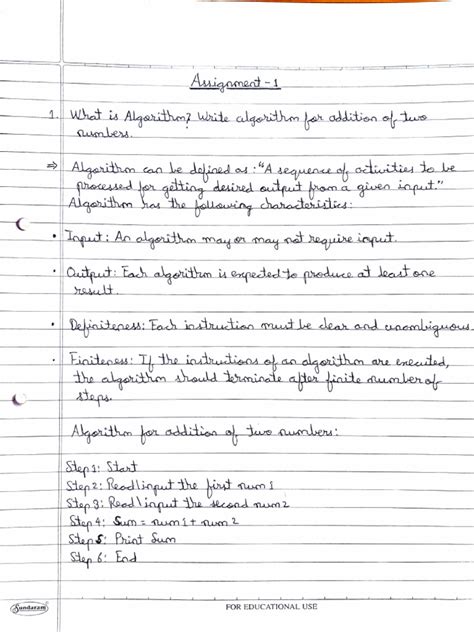 Assignment - 1
1. What is Algorithm? Write algorithm for addition of two
numbers.
⇒ Algorithm can be defined as : "A sequence of activities to be
processed for getting desired output from a given input."
Algorithm has the following characteristics:
• Input: An algorithm may or may not require input.
• Output: Each algorithm is expected to produce at least one
result.
• Definiteness: Each instruction must be clear and unambiguous.
• Finiteness: If the instructions of an algorithm are executed,
the algorithm should terminate after finite number of
steps.
Algorithm for addition of two numbers:
Step 1: Start
Step 2: Read\input the first num 1
Step 3: Read\input the second num 2
Step 4: Sum = num 1 + num 2
Step 5: Print Sum
Step 6: End
Sundaram
FOR EDUCATIONAL USE